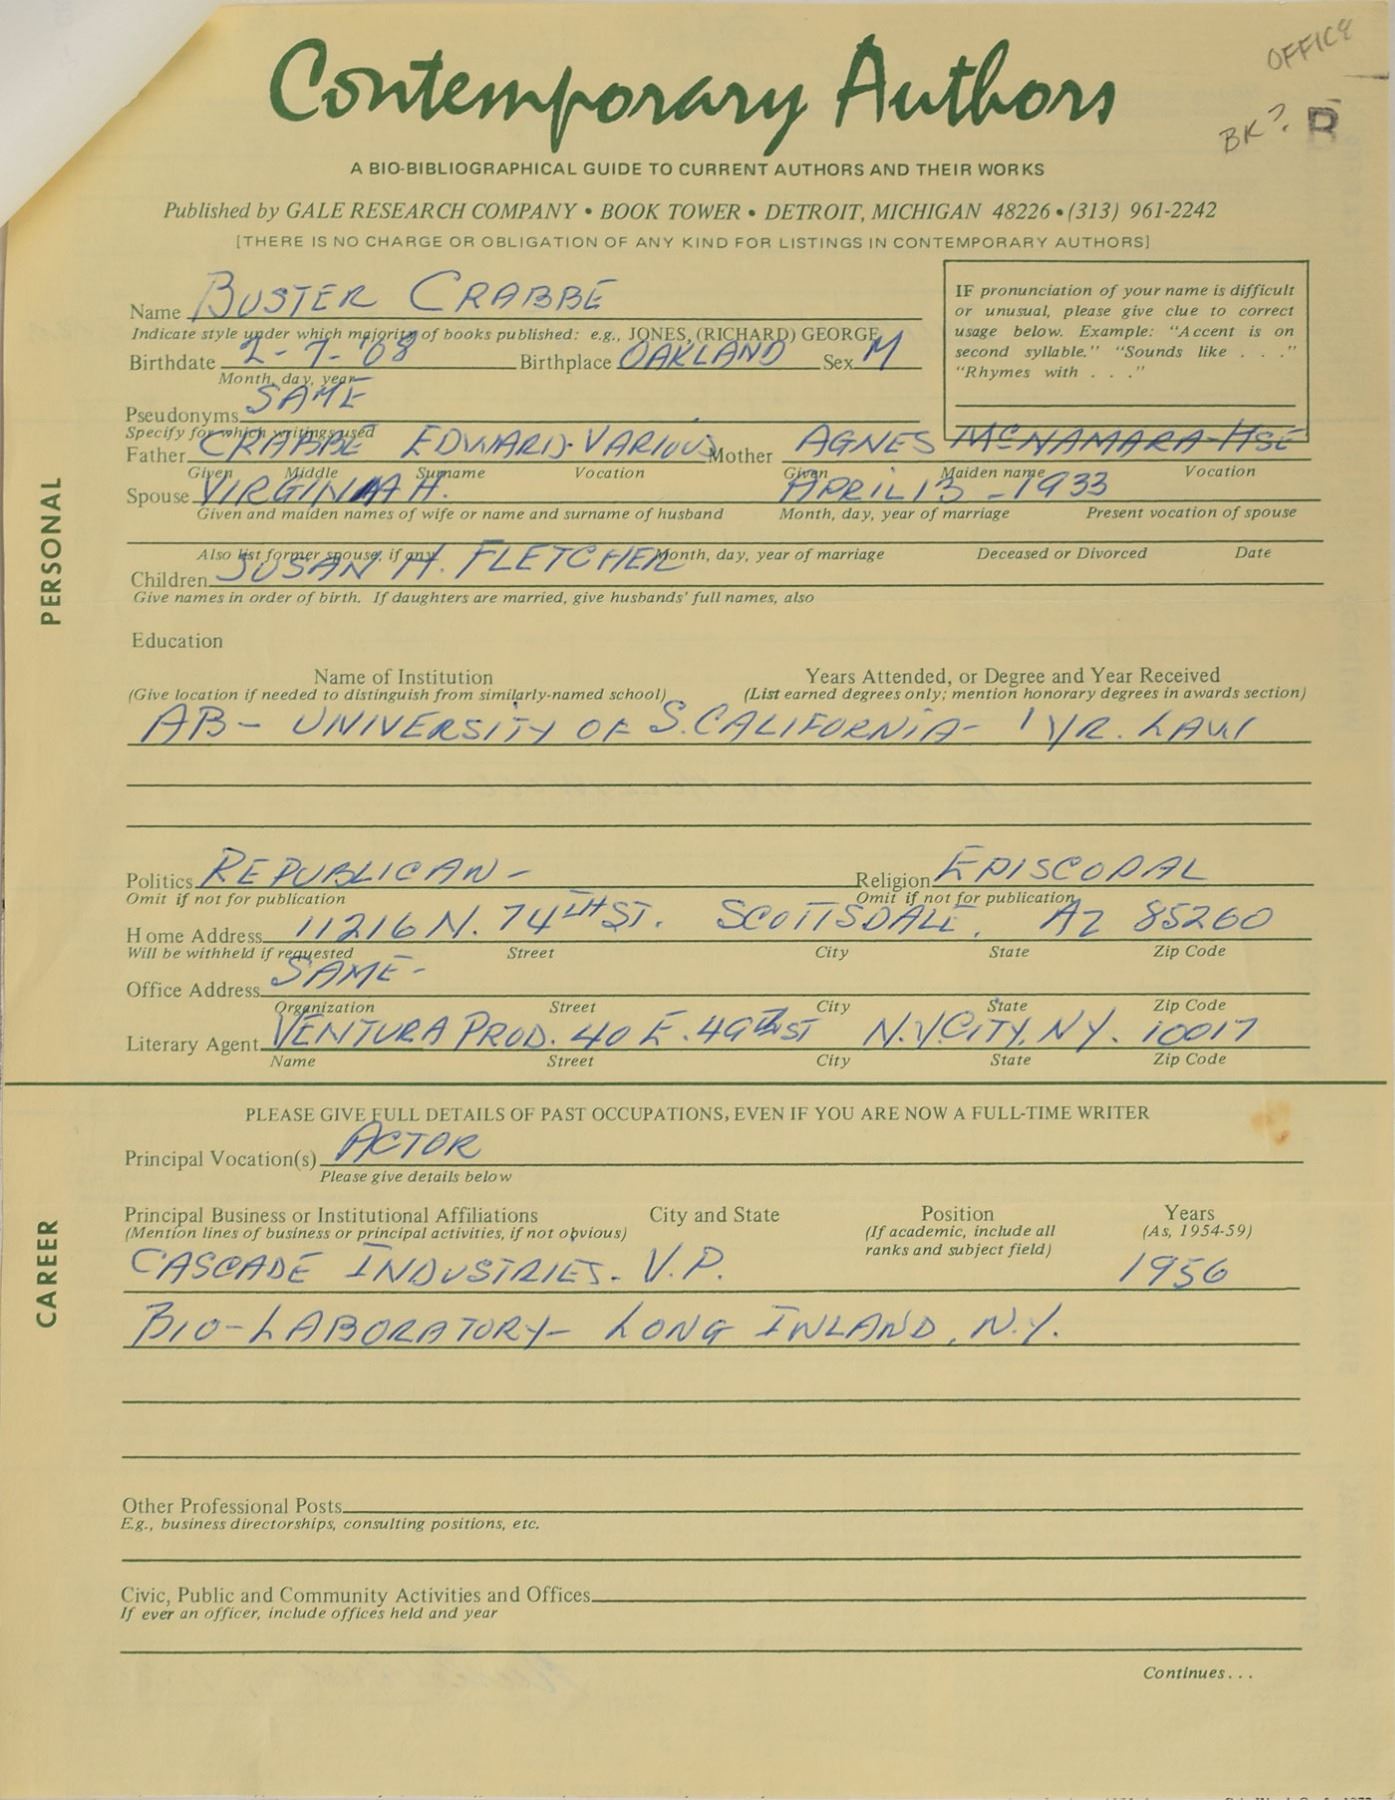 OFFICE
Contemporary Authors
BK? R
A BIO-BIBLIOGRAPHICAL GUIDE TO CURRENT AUTHORS AND THEIR WORKS
Published by GALE RESEARCH COMPANY • BOOK TOWER • DETROIT, MICHIGAN 48226 • (313) 961-2242
[THERE IS NO CHARGE OR OBLIGATION OF ANY KIND FOR LISTINGS IN CONTEMPORARY AUTHORS]
Name BUSTER CRABBE
Indicate style under which majority of books published: e.g., JONES, (RICHARD) GEORGE
IF pronunciation of your name is difficult
or unusual, please give clue to correct
usage below. Example: "Accent is on
second syllable." "Sounds like . . ."
"Rhymes with . . ."
Birthdate 2-7-'08 Birthplace OAKLAND Sex M
Month, day, year
Pseudonyms SAME
Specify for which writings used
Father CRABBE EDWARD-VARIOUS Mother AGNES McNAMARA-HSE
Given Middle Surname Vocation Given Maiden name Vocation
Spouse VIRGINIA H. APRIL 13 - 1933
Given and maiden names of wife or name and surname of husband Month, day, year of marriage Present vocation of spouse
Also list former spouse, if any Month, day, year of marriage Deceased or Divorced Date
Children SUSAN H. FLETCHER
Give names in order of birth. If daughters are married, give husbands' full names, also
PERSONAL
Education
Name of Institution Years Attended, or Degree and Year Received
(Give location if needed to distinguish from similarly-named school) (List earned degrees only; mention honorary degrees in awards section)
AB- UNIVERSITY OF S.CALIFORNIA- 1 YR. LAW
Politics REPUBLICAN- Religion EPISCOPAL
Omit if not for publication Omit if not for publication
Home Address 11216 N. 74TH ST. SCOTTSDALE, AZ 85260
Will be withheld if requested Street City State Zip Code
Office Address SAME-
Organization Street City State Zip Code
Literary Agent VENTURA PROD. 40 E. 49TH ST N.Y.CITY, N.Y. 10017
Name Street City State Zip Code
PLEASE GIVE FULL DETAILS OF PAST OCCUPATIONS, EVEN IF YOU ARE NOW A FULL-TIME WRITER
Principal Vocation(s) ACTOR
Please give details below
Principal Business or Institutional Affiliations City and State Position Years
(Mention lines of business or principal activities, if not obvious) (If academic, include all (As, 1954-59)
ranks and subject field)
CASCADE INDUSTRIES- V.P. 1956
BIO-LABORATORY- LONG INLAND, N.Y.
CAREER
Other Professional Posts
E.g., business directorships, consulting positions, etc.
Civic, Public and Community Activities and Offices
If ever an officer, include offices held and year
Continues...